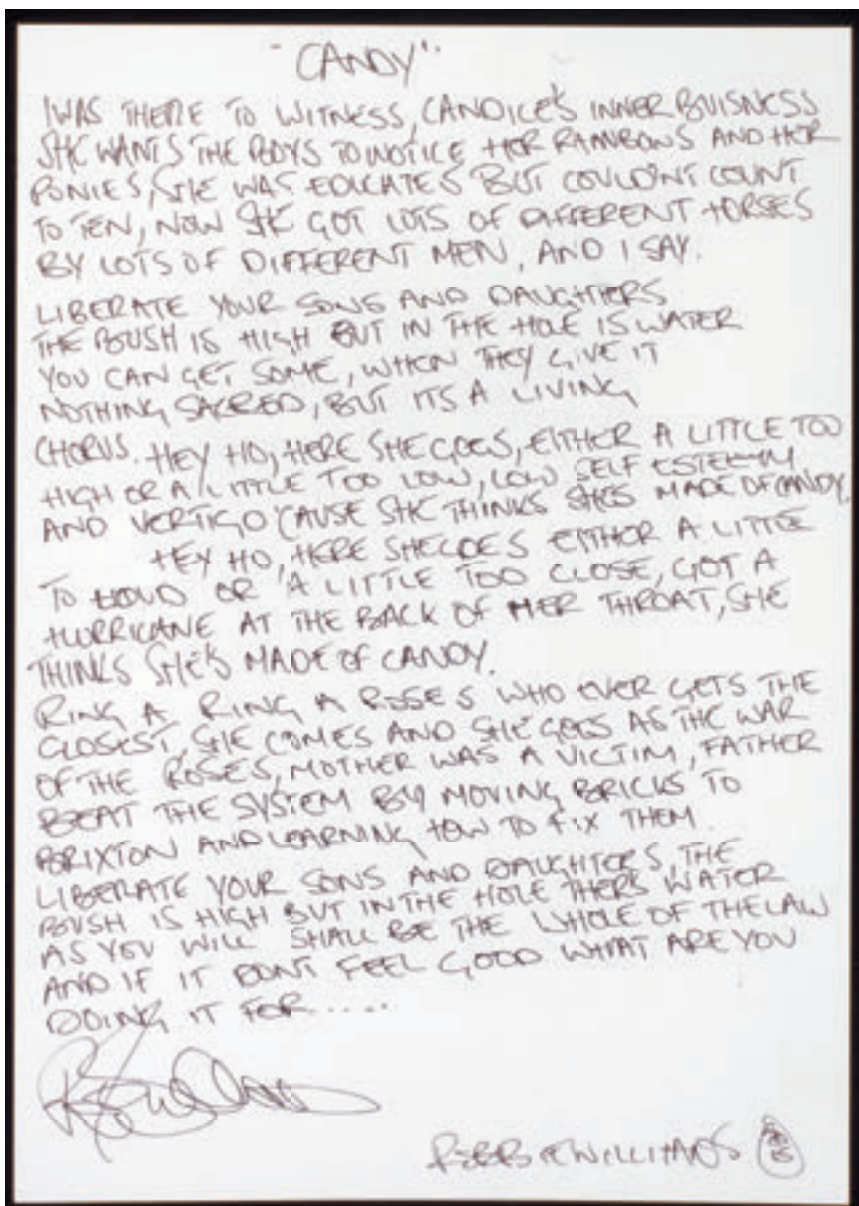 "CANDY"
I WAS THERE TO WITNESS, CANDICE'S INNER BUISNESS
SHE WANTS THE BOYS TO NOTICE HER RAINBOWS AND HER
PONIES, SHE WAS EDUCATES BUT COULDN'T COUNT
TO TEN, NOW SHE GOT LOTS OF DIFFERENT HORSES
BY LOTS OF DIFFERENT MEN, AND I SAY.
LIBERATE YOUR SONS AND DAUGHTERS
THE BUSH IS HIGH BUT IN THE HOLE IS WATER
YOU CAN GET SOME, WHEN THEY GIVE IT
NOTHING SACRED, BUT ITS A LIVING
CHORUS. HEY HO, HERE SHE GOES, EITHER A LITTLE TOO
HIGH OR A LITTLE TOO LOW, LOW SELF ESTEEM
AND VERTIGO 'CAUSE SHE THINKS SHES MADE OF CANDY.
HEY HO, HERE SHE GOES EITHER A LITTLE
TO LOUD OR A LITTLE TOO CLOSE, GOT A
HURRICANE AT THE BACK OF HER THROAT, SHE
THINKS SHE'S MADE OF CANDY.
RING A RING A ROSES WHO EVER GETS THE
CLOSEST, SHE COMES AND SHE GOES AS THE WAR
OF THE ROSES, MOTHER WAS A VICTIM, FATHER
BEAT THE SYSTEM BY MOVING BRICKS TO
BRIXTON AND LEARNING HOW TO FIX THEM.
LIBERATE YOUR SONS AND DAUGHTERS, THE
BUSH IS HIGH BUT IN THE HOLE THERS WATER
AS YOU WILL SHALL BE THE WHOLE OF THE LAW
AND IF IT DONT FEEL GOOD WHAT ARE YOU
DOING IT FOR.....
ROBBIE WILLIAMS